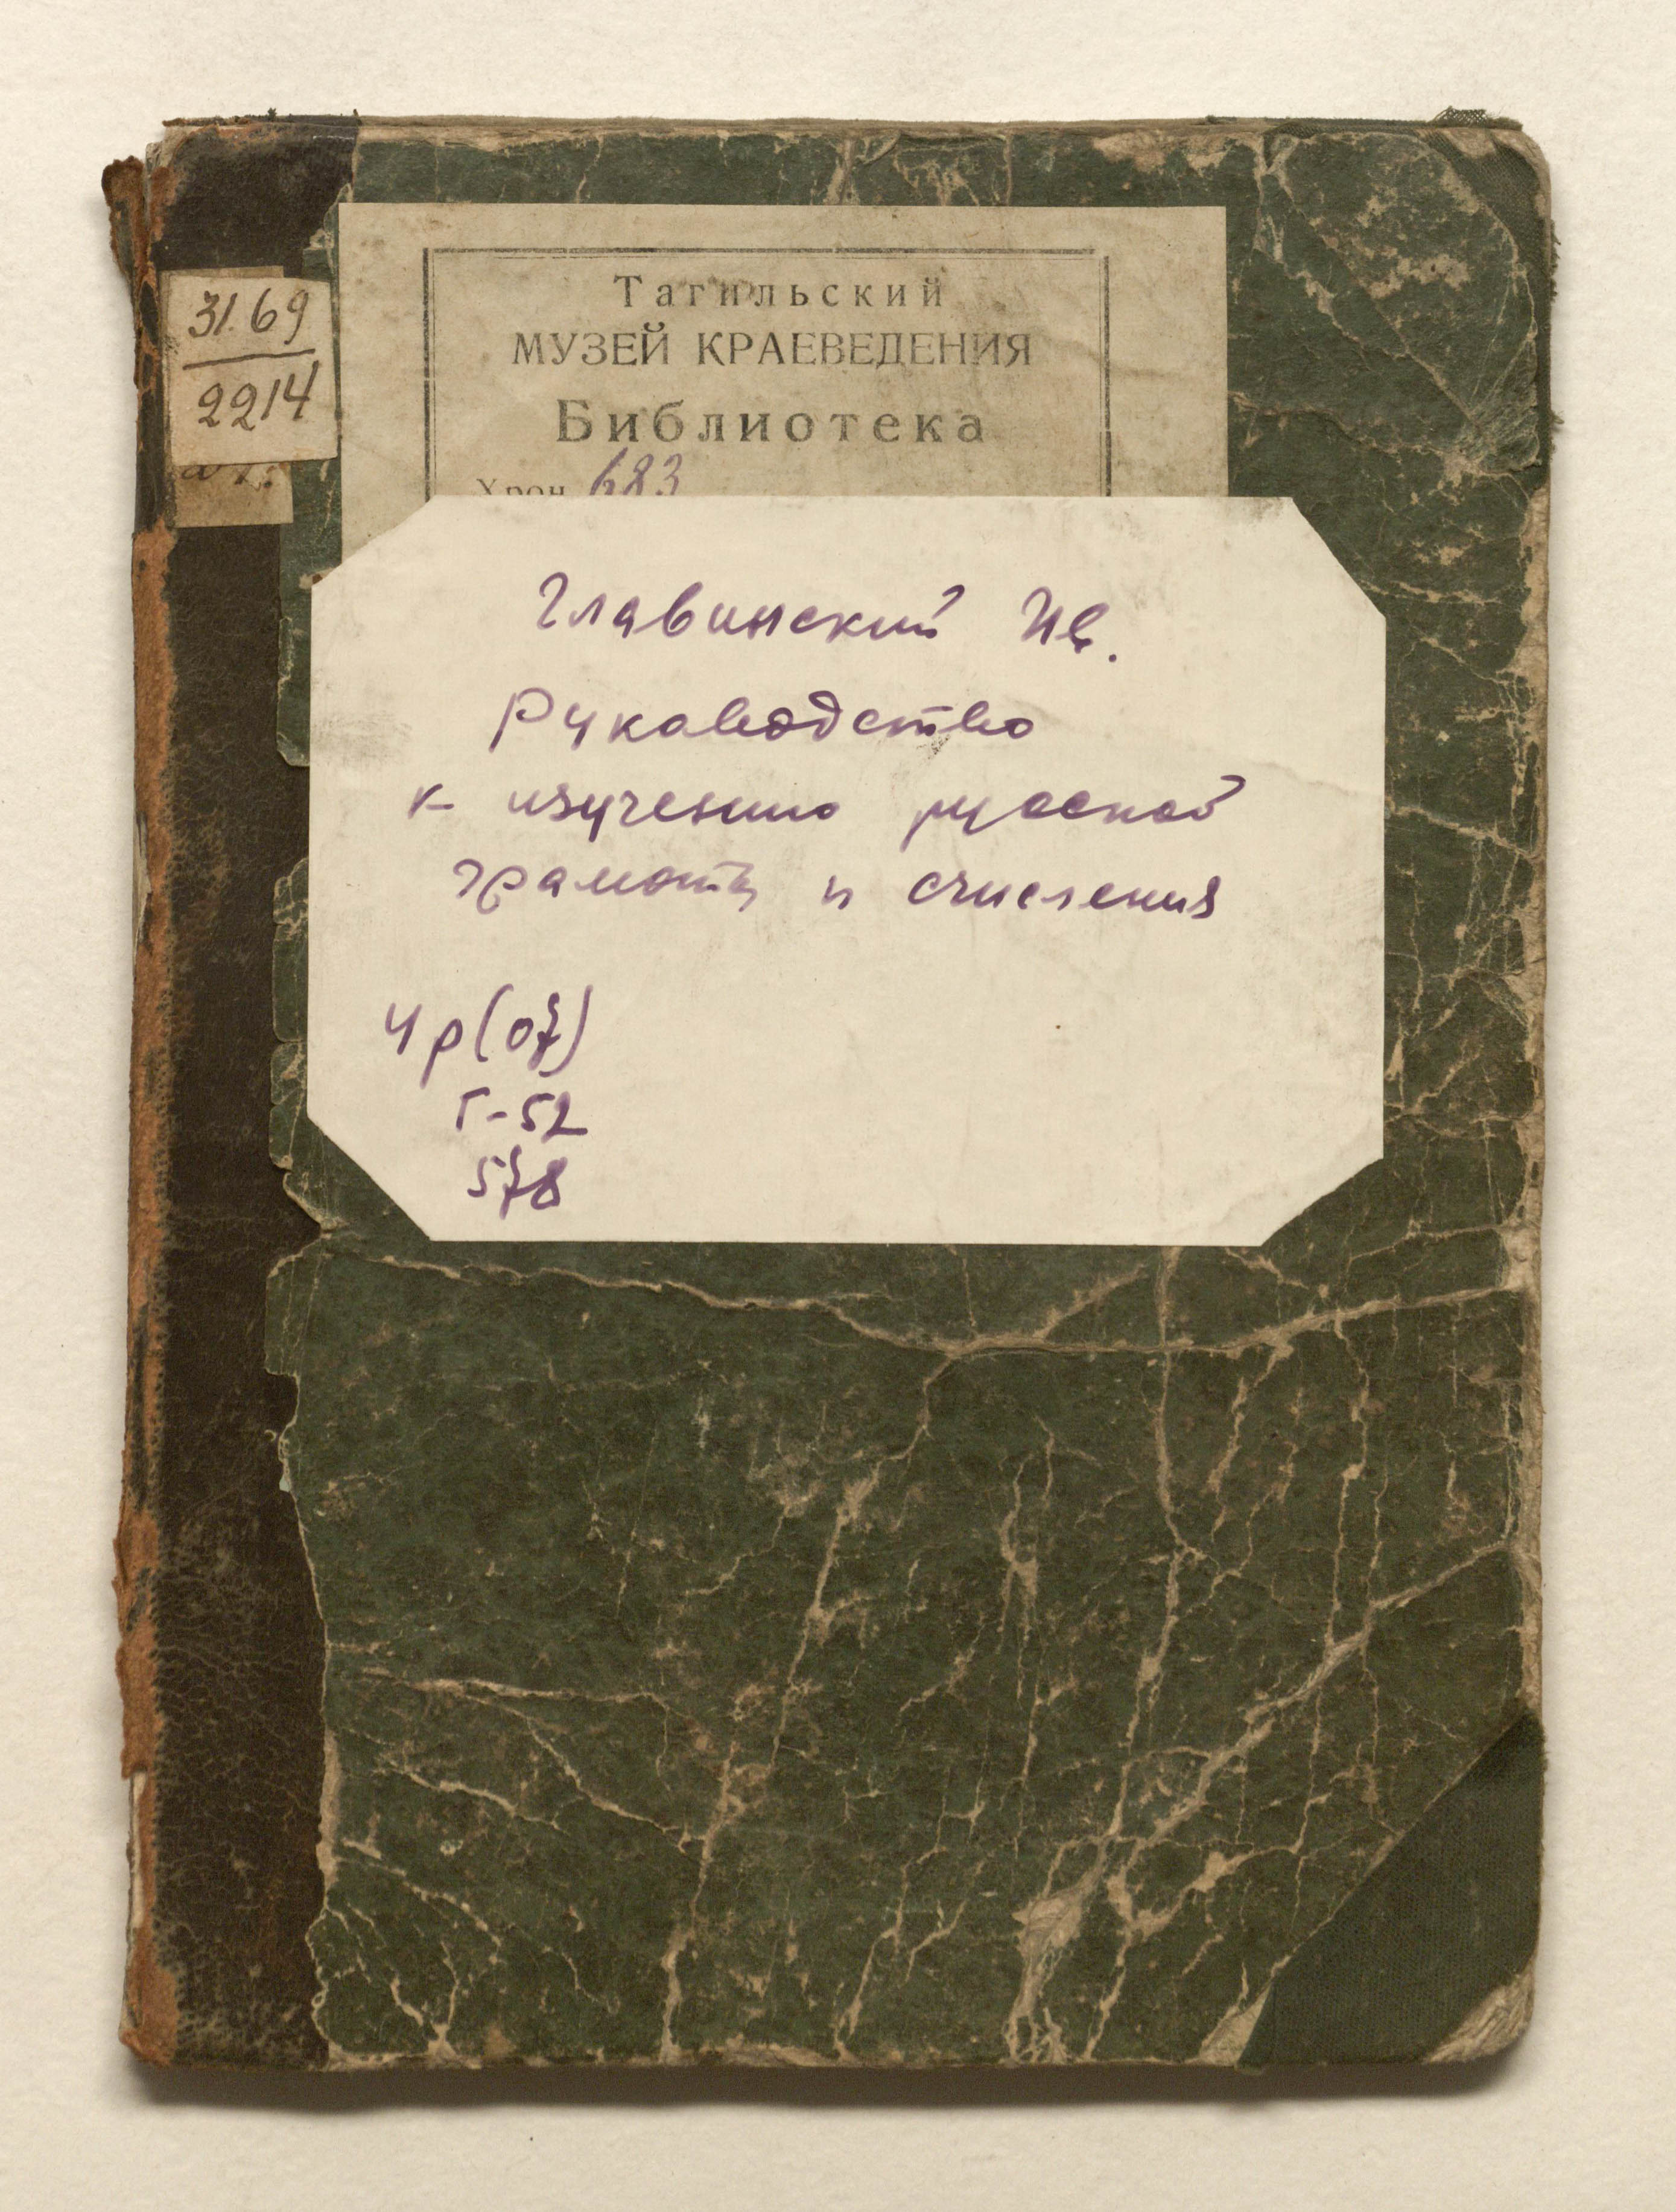 31.69
2214
Тагильский
МУЗЕЙ КРАЕВЕДЕНИЯ
Библиотека
Хрон 683
Главинский Ив.
Руководство
к изучению русской
грамоты и счисления
4р(07)
Г-52
578